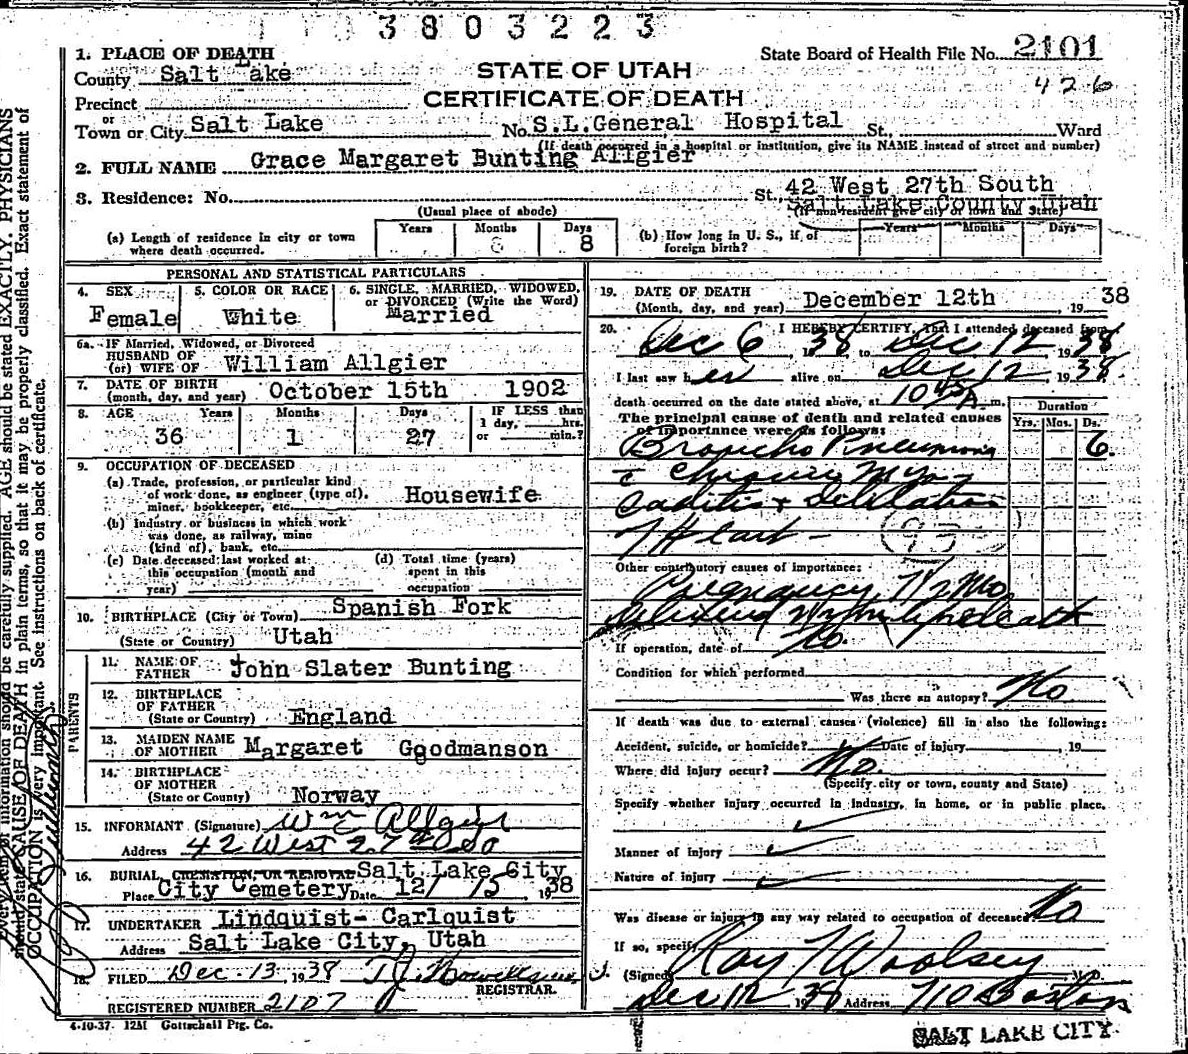 3803223
1. PLACE OF DEATH
State Board of Health File No. 2101
County Salt Lake
STATE OF UTAH
426
Precinct
CERTIFICATE OF DEATH
or
Town or City Salt Lake No. S.L. General Hospital St., Ward
(If death occurred in a hospital or institution, give its NAME instead of street and number)
2. FULL NAME Grace Margaret Bunting Allgier
3. Residence: No. St. 42 West 27th South
Salt Lake County Utah
(Usual place of abode) (If non-resident give city or town and State)
Years Months Days
(a) Length of residence in city or town where death occurred. 8
(b) How long in U. S., if of foreign birth? Years Months Days
PERSONAL AND STATISTICAL PARTICULARS
4. SEX 5. COLOR OR RACE 6. SINGLE, MARRIED, WIDOWED, or DIVORCED (Write the Word)
Female White Married
6a. IF Married, Widowed, or Divorced
HUSBAND OF
(or) WIFE OF William Allgier
7. DATE OF BIRTH
(month, day, and year) October 15th 1902
8. AGE Years Months Days IF LESS than
1 day, hrs.
or min.?
36 1 27
9. OCCUPATION OF DECEASED
(a) Trade, profession, or particular kind
of work done, as engineer (type of),
miner, bookkeeper, etc. Housewife
(b) Industry or business in which work
was done, as railway, mine
(kind of), bank, etc.
(c) Date deceased last worked at
this occupation (month and
year)
(d) Total time (years)
spent in this
occupation
10. BIRTHPLACE (City or Town) Spanish Fork
(State or Country) Utah
PARENTS
11. NAME OF
FATHER John Slater Bunting
12. BIRTHPLACE
OF FATHER
(State or Country) England
13. MAIDEN NAME
OF MOTHER Margaret Goodmanson
14. BIRTHPLACE
OF MOTHER
(State or County) Norway
15. INFORMANT (Signature) Wm E Allgier
Address 42 West 27th So
16. BURIAL, CREMATION, OR REMOVAL Salt Lake City
Place City Cemetery Date 12/ 15, 1938
17. UNDERTAKER Lindquist- Carlquist
Address Salt Lake City, Utah
18. FILED Dec. 13, 1938
REGISTRAR.
REGISTERED NUMBER 2107
4-10-37. 12M Gottschall Ptg. Co.
19. DATE OF DEATH
(Month, day, and year) December 12th, 1938
20. I HEREBY CERTIFY, That I attended deceased from
Dec 6, 1938 to Dec 12 1938
I last saw her alive on Dec 12, 1938
death occurred on the date stated above, at 10 45 A. m.
The principal cause of death and related causes
of importance were as follows:
Duration
Yrs. Mos. Ds.
Broncho Pneumonia 6.
c Chronic Myo-
caditis & Delilation
f Heart - (93)
Other contributory causes of importance:
Pregnancy 7½ Mo.
If operation, date of No.
Condition for which performed
Was there an autopsy? No
If death was due to external causes (violence) fill in also the following:
Accident, suicide, or homicide? Date of injury, 19
Where did injury occur? No.
(Specify city or town, county and State)
Specify whether injury occurred in industry, in home, or in public place.
Manner of injury
Nature of injury
Was disease or injury in any way related to occupation of deceased No
If so, specify
(Signed) Ray T Woolsey M. D.
Dec 12 1938 Address 710 Boston
SALT LAKE CITY